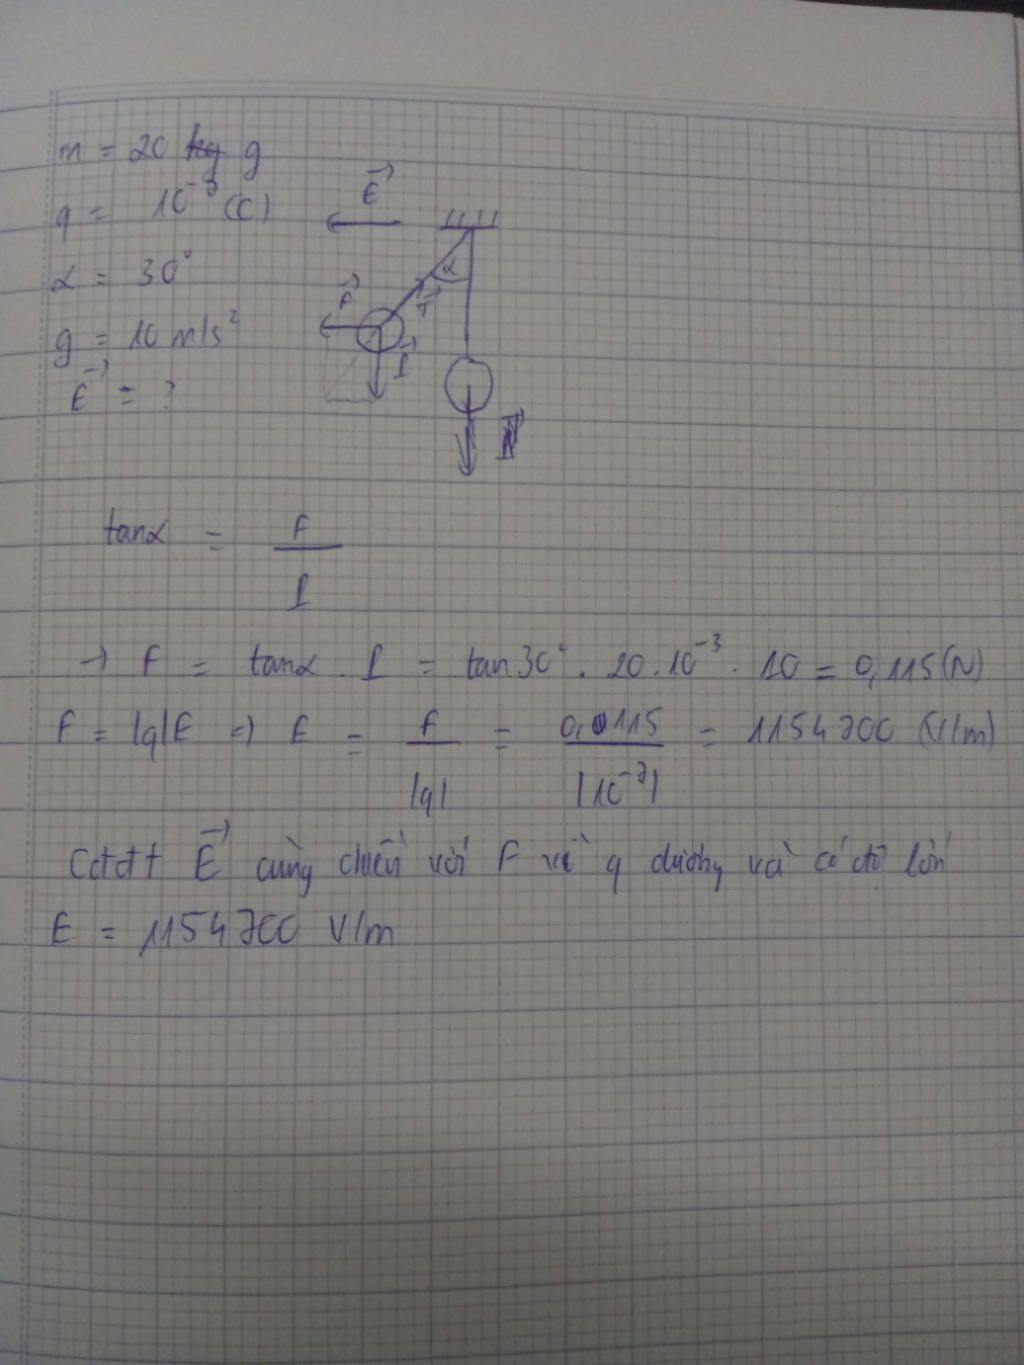 m = 20 g
q = 10⁻⁷ (C)
E→
α = 30°
α
F→
T→
g = 10 m/s²
P→
E→ = ?
tanα = F / P
→ F = tanα . P = tan 30° . 20 . 10⁻³ . 10 = 0,115 (N)
F = |q|E => E = F / |q| = 0,115 / |10⁻⁷| = 1154700 (V/m)
Cđđt E→ cùng chiều với F vì q dương và có độ lớn
E = 1154700 V/m